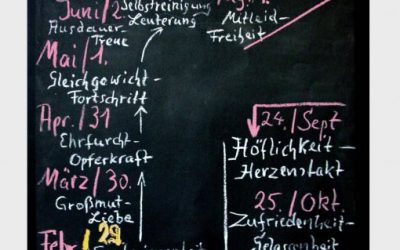 Juni/2
Selbstreinigung
Läuterung
Ausdauer-
Treue
Mitleid-
Freiheit
Mai/1.
Gleichgewicht-
Fortschritt
Apr./31
Ehrfurcht-
Opferkraft
März/30.
Großmut-
Liebe
Febr/
29
24./Sept
Höflichkeit-
Herzenstakt
25./Okt.
Zufriedenheit-
Gelassenheit